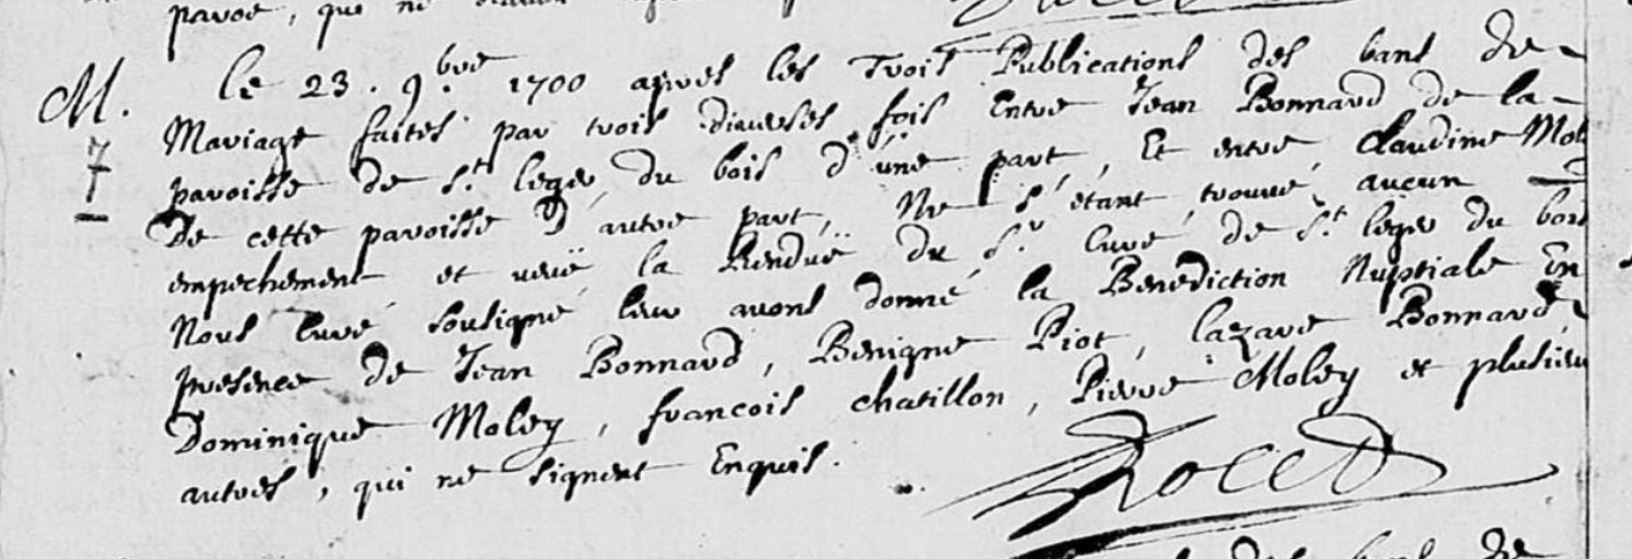 pavoe, que ne
M. Le 23. 9.bre 1700 apres les Trois Publications des bans de
7 Mariage faites par trois diverses fois Entre Jean Bonnard de la
paroisse de St leger du bois d'une part, Et entre, Claudine Mol
De cette paroisse D'autre part, Ne s'étant trouvé aucun
empechement et veüe la Rendüe du Sr Curé de St leger du bois
Nous Curé sousigné leur avons donné la Benediction Nuptiale En
presence de Jean Bonnard, Benigne Piot, lazare Bonnard,
Dominique Moley, francois chatillon, Pierre Moley et plusieu
autres, qui ne signent Enquis.
des bans de